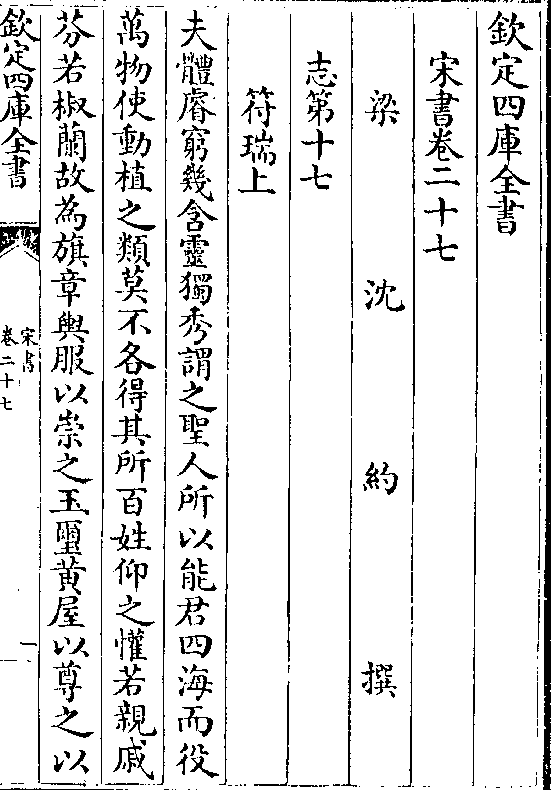 欽定四庫全書
宋書卷二十七
梁沈約撰
志第十七
符瑞上
夫體睿窮幾含靈獨秀謂之聖人所以能君四海而役
萬物使動植之類莫不各得其所百姓仰之懽若親戚
芬若椒蘭故為旗章輿服以崇之玉璽黃屋以尊之以
欽定四庫全書
宋書
卷二十七
一